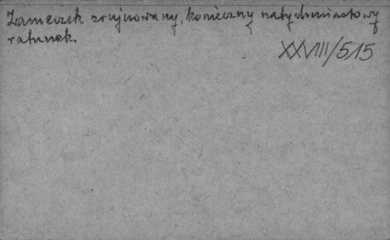 Zameczek zrujnowany, konieczny natychmiastowy
ratunek.
XXVIII/515